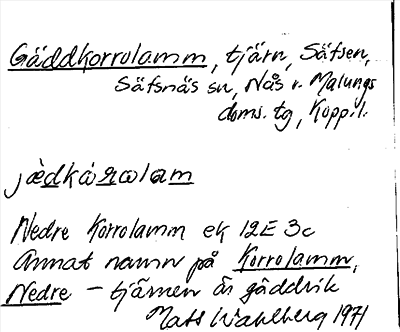 Gäddkorrolamm, tjärn, Säfsen,
Säfsnäs sn, Nås o. Malungs
doms. tg, Koppl.
jèdkàrωlam
Nedre Korrolamm ek 12E 3c
Annat namn på Korrolamm,
Nedre - tjärnen är gäddrik
Mats Wahlberg 1971